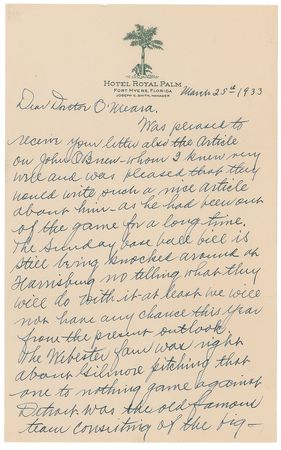 HOTEL ROYAL PALM
FORT MYERS, FLORIDA
JOSEPH E. SMITH, MANAGER
March 25th 1933
Dear Doctor O'Meara,
Was pleased to
receive your letter also the Article
on John O'Brien - whom I knew very
well and was pleased that they
would write such a nice article
about him - as he had been out
of the game for a long time.
The Sunday base ball bill is
still being knocked around at
Harrisburg no telling what they
will do with it at least we will
not have any chance this year
from the present outlook.
The Webester fan was right
about Gilmore pitching that
one to nothing game against
Detroit. was the old famous
team consisting of the big -